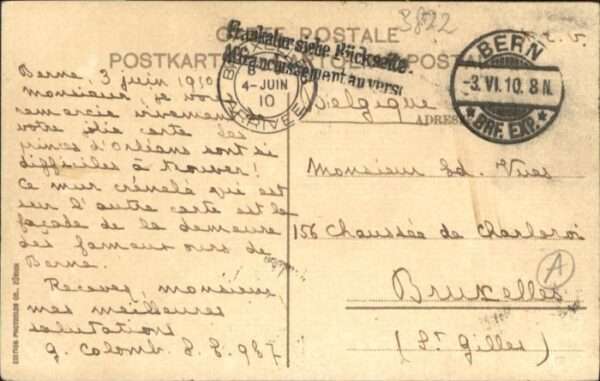 CARTE POSTALE
POSTKARTE
3822
Frankatur siehe Rückseite.
Affranchissement au verso
4-JUIN
10
ARRIVÉE
BERN
-3.VI.10.8N.
* BRF. EXP. *
Berne, 3 juin 1910
monsieur, je vous
remercie vivement
votre jolie carte les
ruines d'Orléans sont si
difficiles à trouver!
Ce mur crénelé qui est
sur l'autre carte est la
façade de la demeure
des fameux ours de
Berne.
Recevez, monsieur
mes meilleures
salutations
G. Colomb. S. S. 987
Belgique
ADRES
Monsieur Ed.
156 Chaussée de Charleroi
Bruxelles
(St Gilles)
A
EDITION PHOTOGLOB CO., ZÜRICH